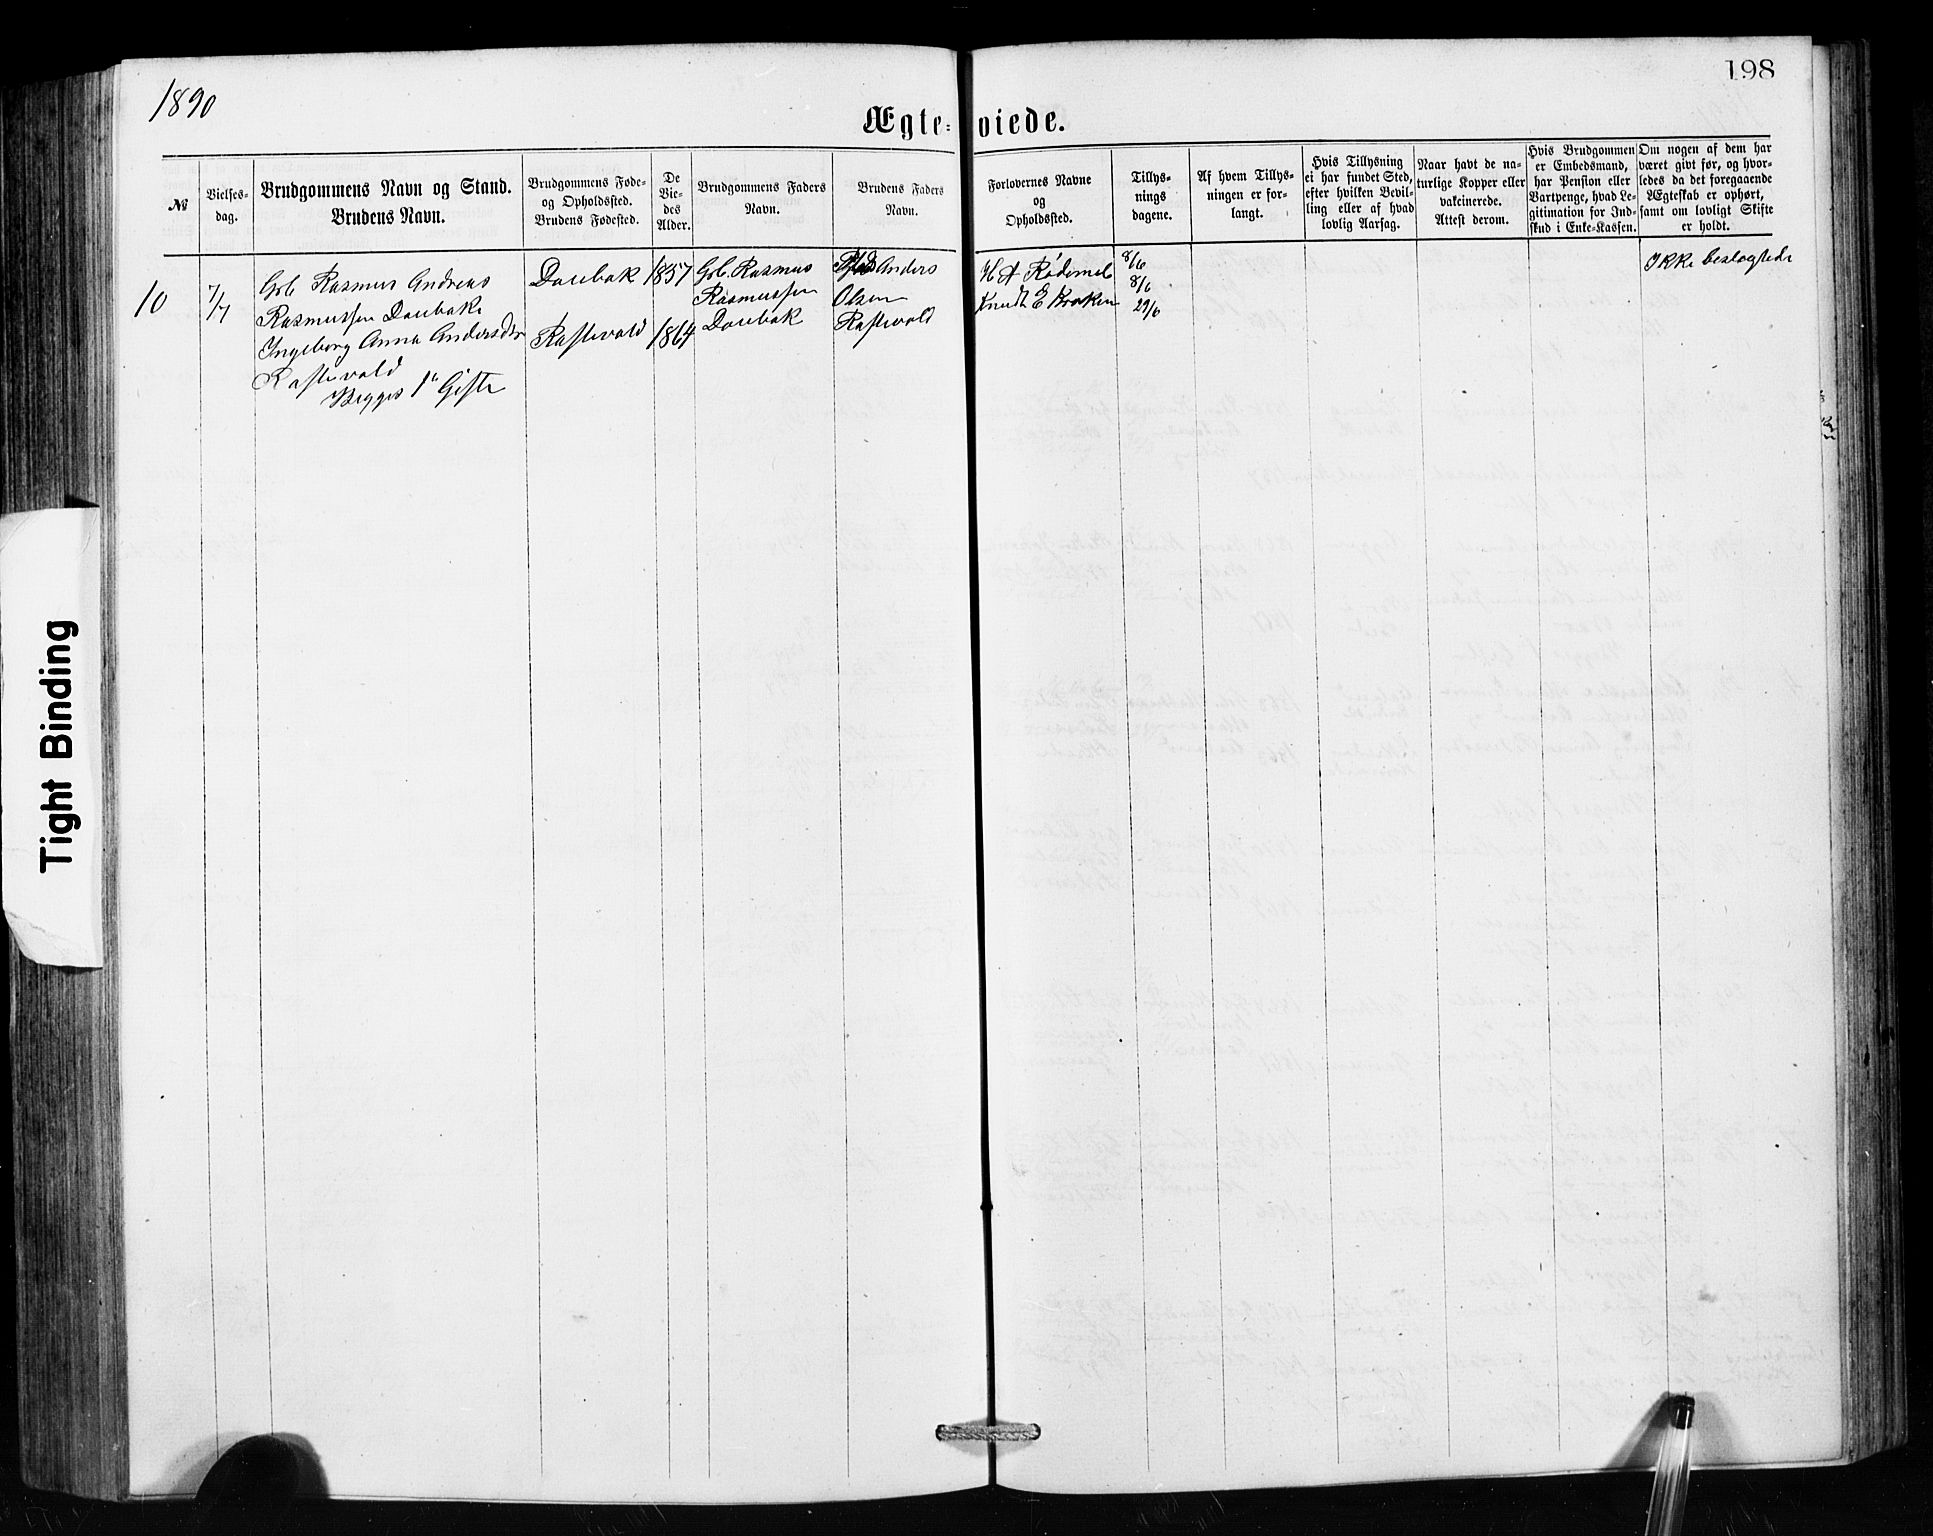 1890
198
Ægte-viede.
№
Vielses-
dag.
Brudgommens Navn og Stand.
Brudens Navn.
Brudgommens Føde-
og Opholdssted.
Brudens Fødested.
De
Vie-
des
Alder.
Brudgommens Faders
Navn.
Brudens Faders
Navn.
Forlovernes Navne
og
Opholdssted.
Tillys-
nings
dagene.
Af hvem Tillys-
ningen er for-
langt.
Hvis Tillysning
ei har fundet Sted,
efter hvilken Bevil-
ling eller af hvad
lovlig Aarsag.
Naar havt de na-
turlige Kopper eller
vakcinerede.
Attest derom.
Hvis Brudgommen
er Embedsmand,
har Pension eller
Vartpenge, hvad Le-
gitimation for Ind-
skud i Enke-Kassen.
Om nogen af dem har
været givt før, og hvor-
ledes da det foregaaende
Ægteskab er ophørt,
samt om lovligt Skifte
er holdt.
10
7/7
Gbr. Rasmus Andreas
Rasmussen Darebake
Ingeborg Anna Andersdtr
Rastevold
Begges 1ste Gifte
Darebak
Rastevold
1857
1864
Gbr. Rasmus
Rasmussen
Darebak
Anders
Olsen
Rastevold
H A Rødemel
Knudt E Kraken
8/6
8/6
29/6
Ikke beslægtede
Tight Binding